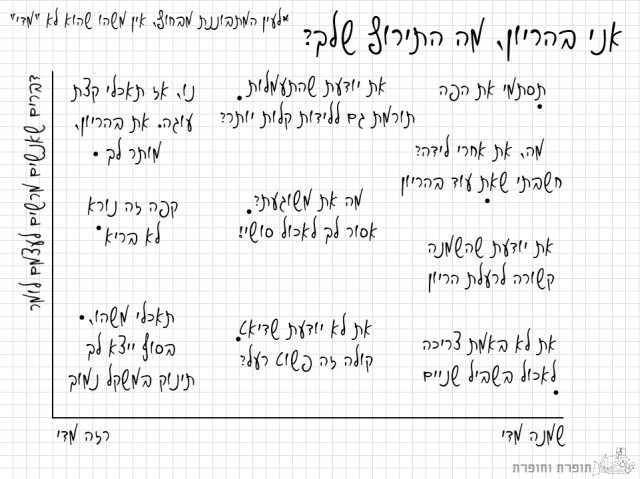 אני בהריון, מה התירוץ שלך?
*לעין המתבוננת מבחוץ, אין משהו שהוא לא "מדי"
דברים שאנשים מרשים לעצמם לומר
תסתמי את הפה
את יודעת שהתעמלות
תורמת גם ללידות קלות יותר?
נו, אז תאכלי קצת
עוגה. את בהריון,
מותר לך
מה, את אחרי לידה?
חשבתי שאת עוד בהריון
מה את משוגעת?
אסור לך לאכול סושי!
קפה זה נורא
לא בריא
את יודעת שהשמנה
קשורה לרעלת הריון
את לא באמת צריכה
לאכול בשביל שניים
את לא יודעת שדיאט
קולה זה פשוט רעל?
תאכלי משהו,
בסוף ייצא לך
תינוק במשקל נמוך
שמנה מדי
רזה מדי
תופרת וחופרת